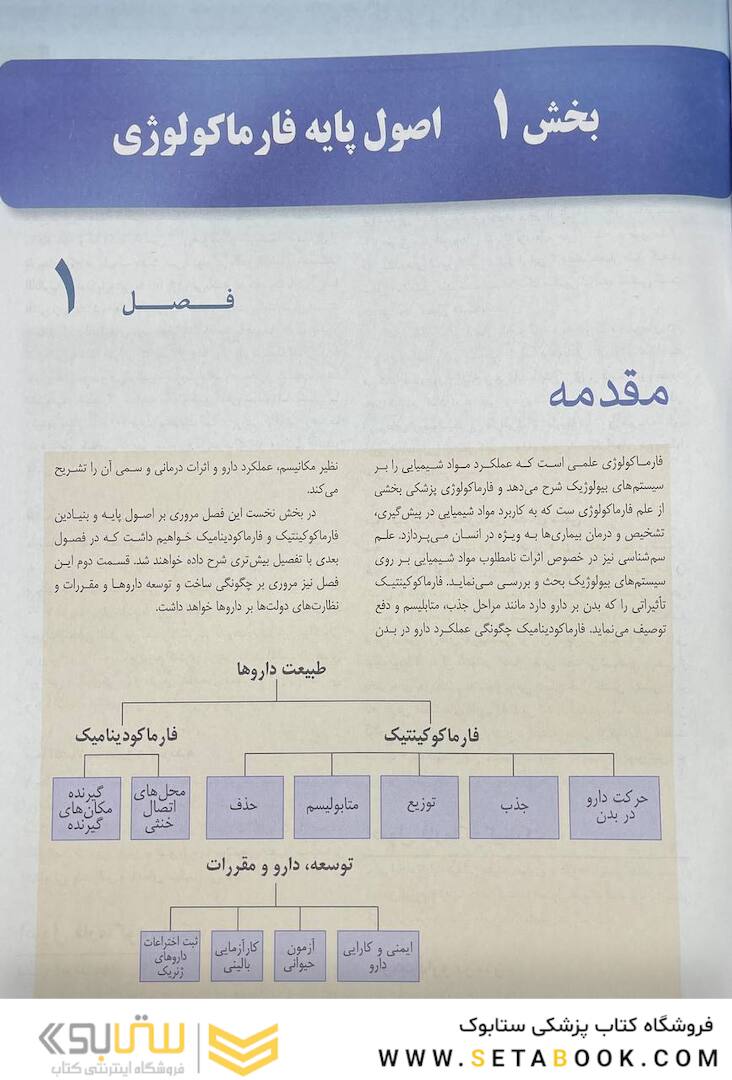 بخش ۱ اصول پایه فارماکولوژی
فـصـل ۱
مقدمه
فارماکولوژی علمی است که عملکرد مواد شیمیایی را بر
سیستم‌های بیولوژیک شرح می‌دهد و فارماکولوژی پزشکی بخشی
از علم فارماکولوژی ست که به کاربرد مواد شیمیایی در پیش‌گیری،
تشخیص و درمان بیماری‌ها به ویژه در انسان می‌پردازد. علم
سم‌شناسی نیز در خصوص اثرات نامطلوب مواد شیمیایی بر روی
سیستم‌های بیولوژیک بحث و بررسی می‌نماید. فارماکوکینتیک
تأثیراتی را که بدن بر دارو دارد مانند مراحل جذب، متابلیسم و دفع
توصیف می‌نماید. فارماکودینامیک چگونگی عملکرد دارو در بدن
نظیر مکانیسم، عملکرد دارو و اثرات درمانی و سمی آن را تشریح
می‌کند.
در بخش نخست این فصل مروری بر اصول پایه و بنیادین
فارماکوکینتیک و فارماکودینامیک خواهیم داشت که در فصول
بعدی با تفصیل بیش‌تری شرح داده خواهند شد. قسمت دوم این
فصل نیز مروری بر چگونگی ساخت و توسعه داروها و مقررات و
نظارت‌های دولت‌ها بر داروها خواهد داشت.
طبیعت داروها
فارماکوکینتیک
فارماکودینامیک
حرکت دارو
در بدن
جذب
توزیع
متابولیسم
حذف
محل‌های
اتصال
خنثی
گیرنده
مکان‌های
گیرنده
توسعه، دارو و مقررات
ایمنی و کارایی
دارو
آزمون
حیوانی
کارآزمایی
بالینی
ثبت اختراعات
داروهای
ژنریک
فروشگاه کتاب پزشکی ستابوک
WWW.SETABOOK.COM
ستابوک
فروشگاه اینترنتی کتاب